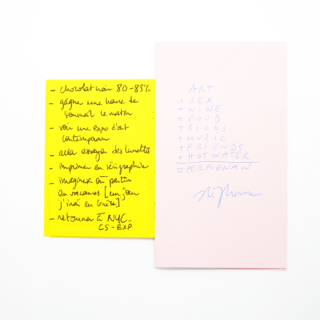 - chocolat noir 80-85%
- gagner une heure de
sommeil le matin
- voir une expo d'art
contemporain
- aller essayer des lunettes
- imprimer en sérigraphie
- imaginer où partir
en vacances [un jour
j'irai en
- retourner à NYC.
ART
+ SEA
+ WINE
+ FOOD
+ BOOKS
+ MUSIC
+ FRIENDS
+ HOT WATER
= PERPIGNAN